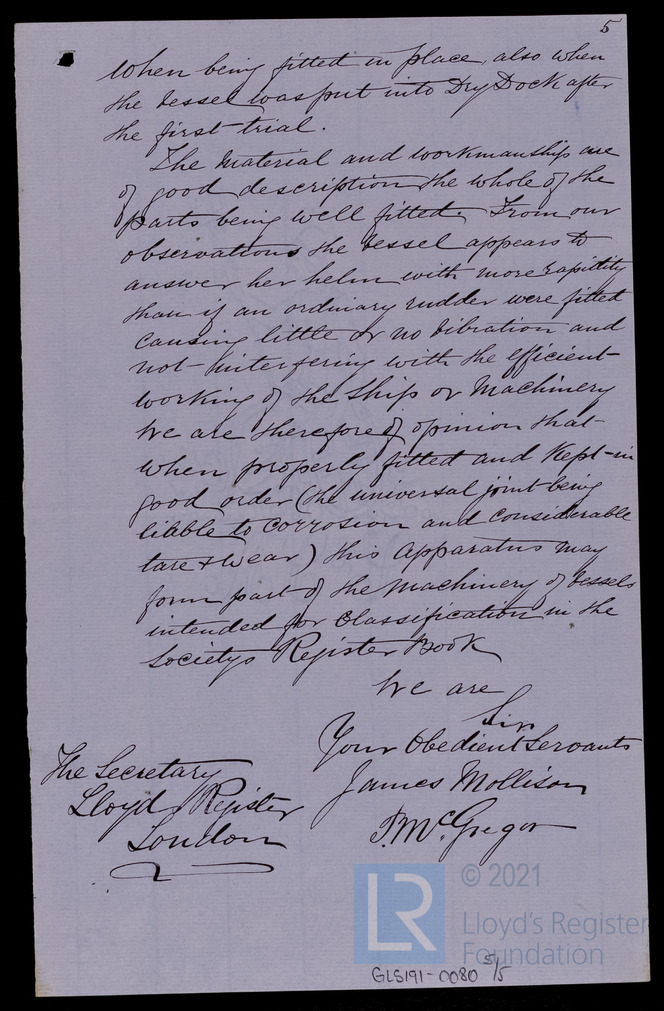 5
When being fitted in place, also when
the vessel was put into Dry Dock after
the first trial.
The Material and workmanship are
of good description the whole of the
parts being well fitted. From our
observations the vessel appears to
answer her helm with more rapidity
than if an ordinary rudder were fitted
causing little or no vibration and
not interfering with the efficient
working of the Ship or Machinery
We are therefore of opinion that
when properly fitted and Kept in
good order (the universal joint being
liable to corrosion and considerable
tare & wear) this Apparatus may
form part of the Machinery of vessels
intended for Classification in the
Societys Register Book
We are
Sir
Your Obedient Servants
James Mollison
The Secretary
Lloyds Register
London
McGregor
LR
© 2021
Lloyd's Register
Foundation
GLS191-0080 5/5